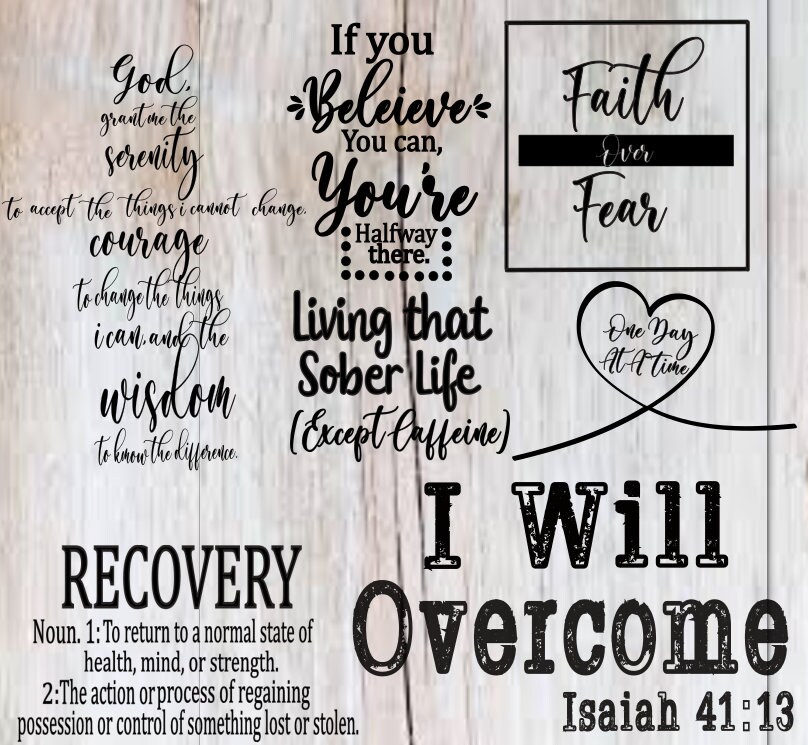 God,
grant me the
serenity
to accept the things i cannot change.
courage
to change the things
i can, and the
wisdom
to know the difference.
If you
Beleieve
You can,
You're
Halfway
there.
Faith
Over
Fear
Living that
Sober Life
(Except Caffeine)
One Day
At A time
RECOVERY
Noun. 1: To return to a normal state of
health, mind, or strength.
2:The action or process of regaining
possession or control of something lost or stolen.
I Will
Overcome
Isaiah 41:13